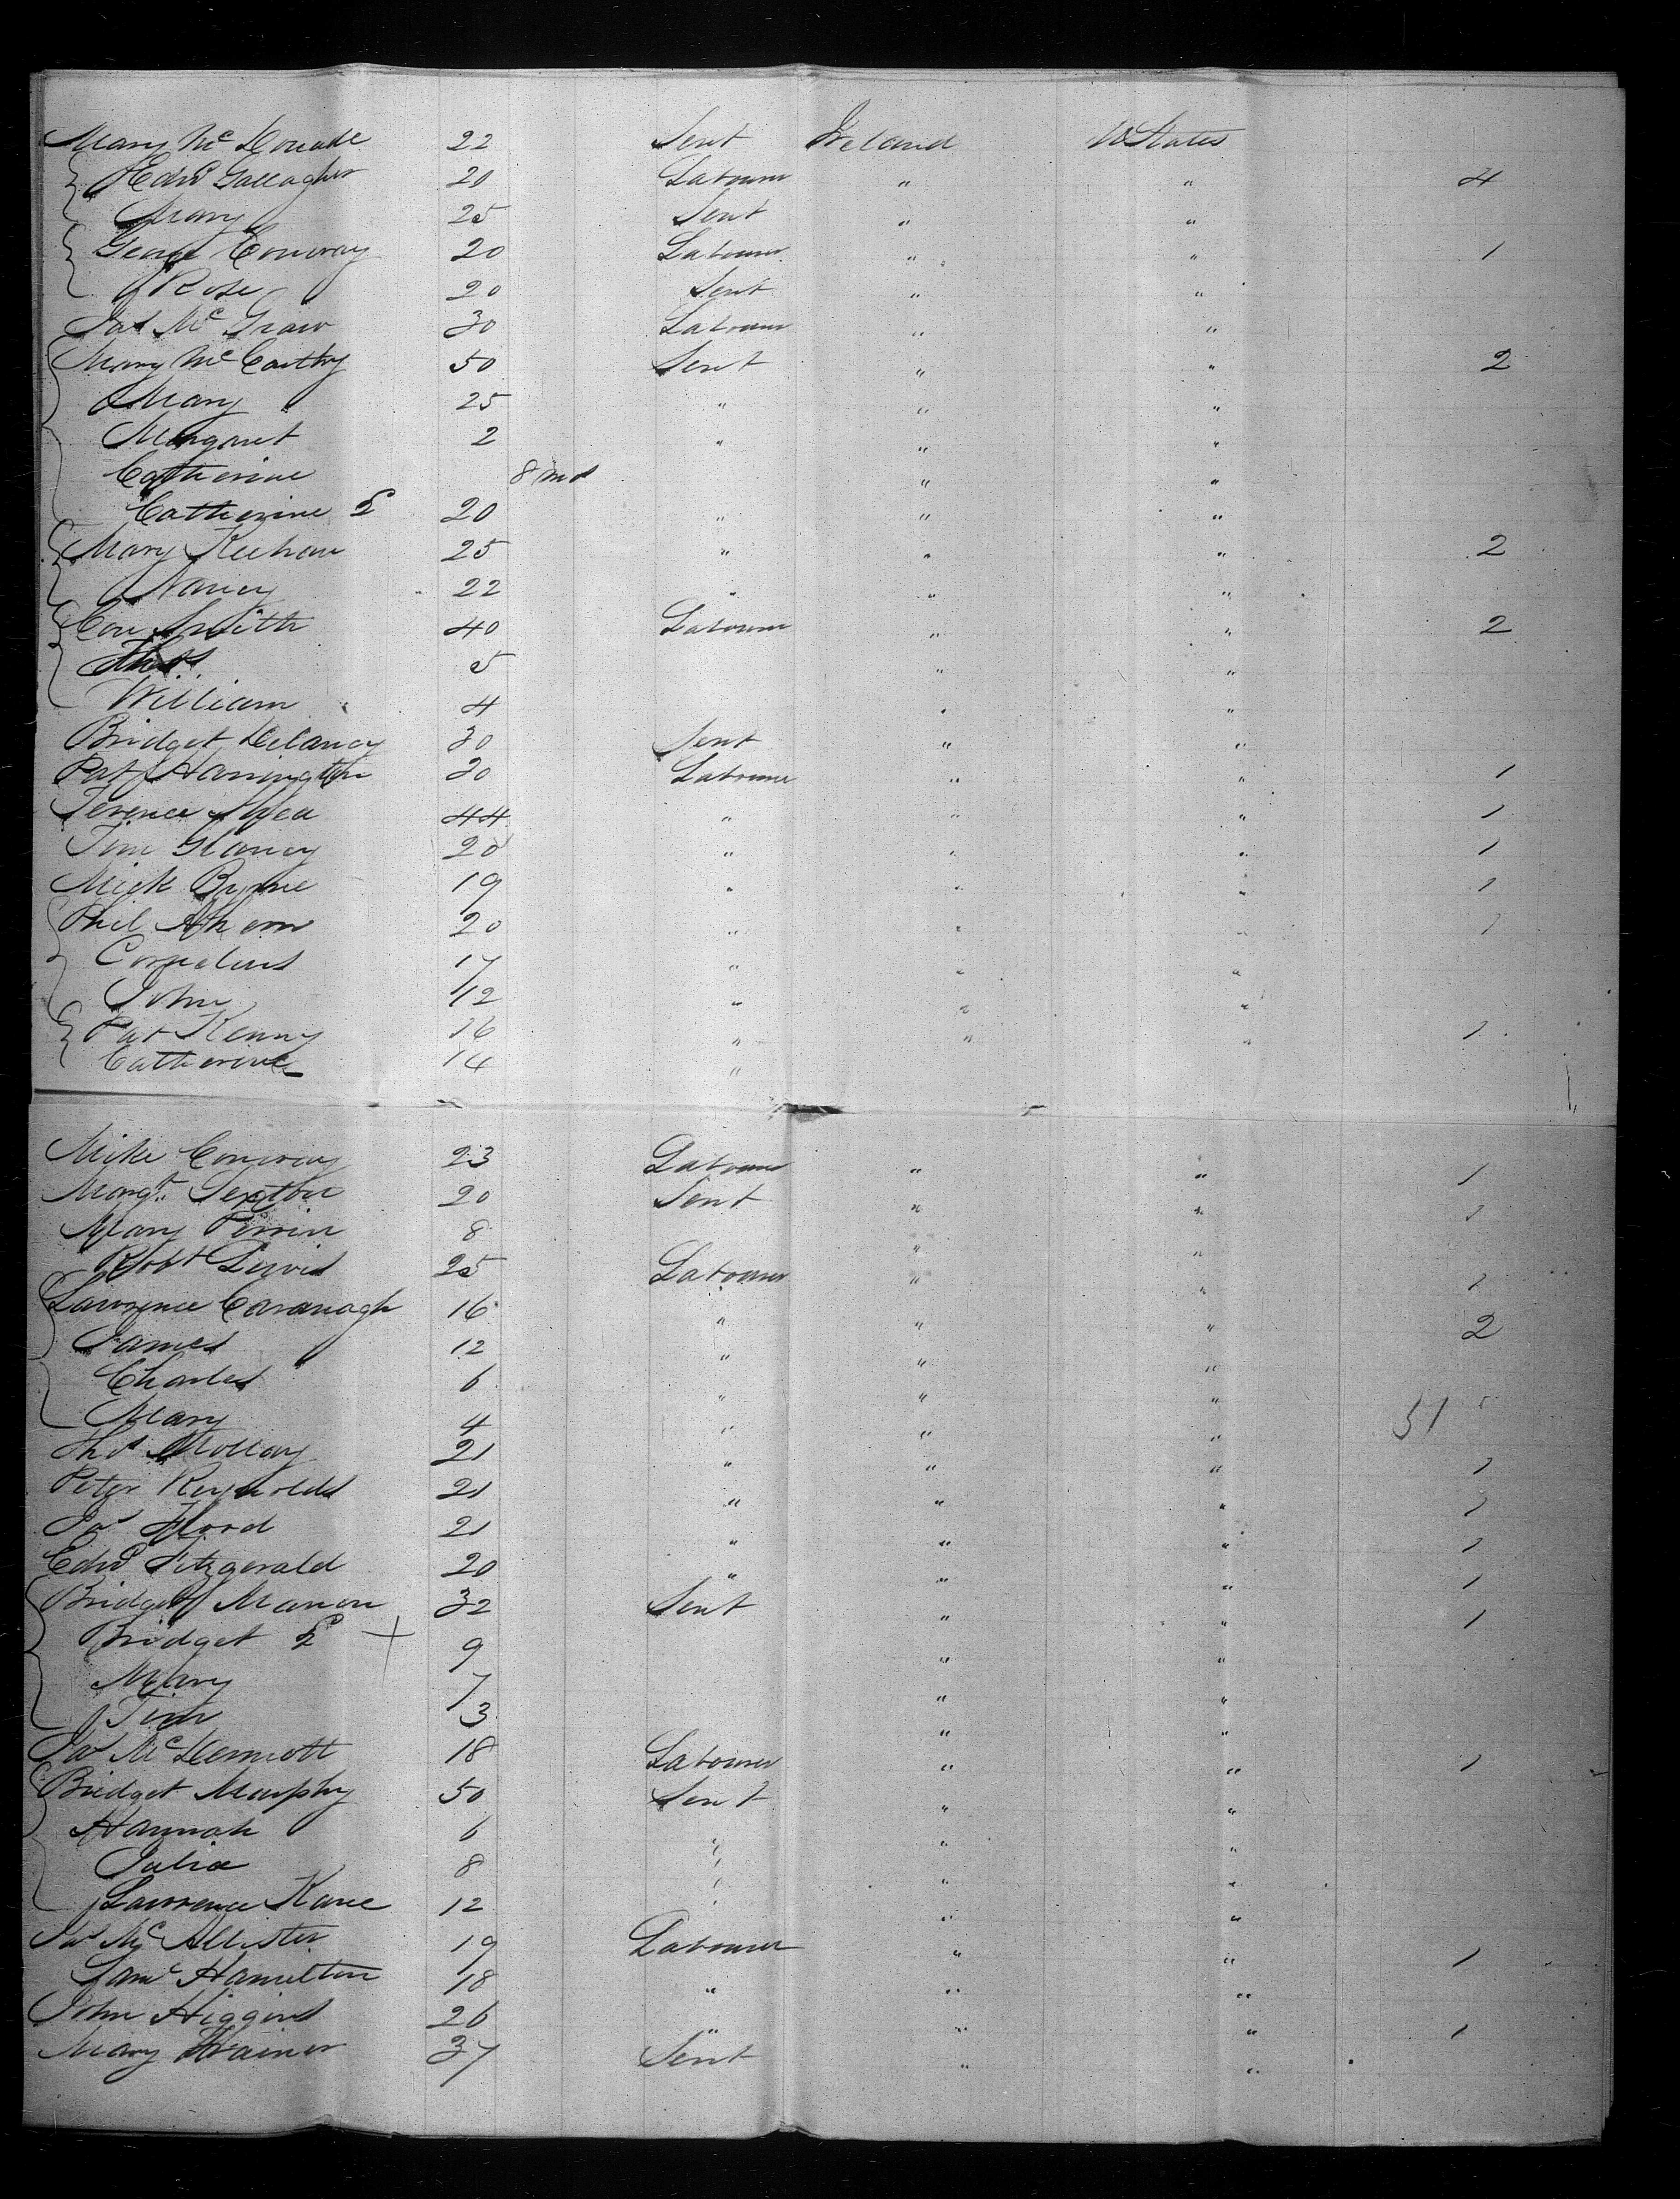 Mary Mc Donade 22 Sert Ireland U States
Edwd Gallagher 20 Labourer " " 4
Mary 25 Sert " "
George Conway 20 Labourer " " 1
Rose 20 Sert " "
Jas Mc Graw 30 Labourer " "
Mary Mc Carthy 50 Sert " " 2
Mary 25 " " "
Margaret 2 " " "
Catherine 8 mos " "
Catherine 2 20 " " "
Mary Keehan 25 " " " 2
Nancy 22 " " "
Con Smith 40 Labourer " " 2
Thos 5 " "
William 4 " "
Bridget Delaney 30 Sert " "
Pat Harrington 20 Labourer " " 1
Terence Shea 44 " " " 1
Tim Glancy 20 " " " 1
Mick Byrne 19 " " " 1
Phil Ahern 20 " " " 1
Cornelius 17 " " "
John 12 " " "
Pat Kenny 16 " " " 1
Catherine 14 "
Mike Conway 23 Labourer " " 1
Margt Sexton 20 Sert " " 1
Mary Perrin 8 " "
Robt Lewis 25 Labourer " " 1
Lawrence Cavanagh 16 " " " 2
James 12 " " "
Charles 6 " " "
Mary 4 " " " 31
Thos Mollay 21 " " " 1
Peter Reynolds 21 " " " 1
Jas Flood 21 " " " 1
Edwd Fitzgerald 20 " " " 1
Bridget Manon 32 Sert " " 1
Bridget 2 + 9 " "
Mary 7 " "
Tim 3 " "
Jas Mc Dermott 18 Labourer " " 1
Bridget Murphy 50 Sert " "
Hannah 6 " " "
Julia 8 " " "
Lawrence Kane 12 " " "
Jas Mc Allister 19 Labourer " " 1
Saml Hamilton 18 " " "
John Higgins 26 " " " 1
Mary Trainer 37 Sert " "